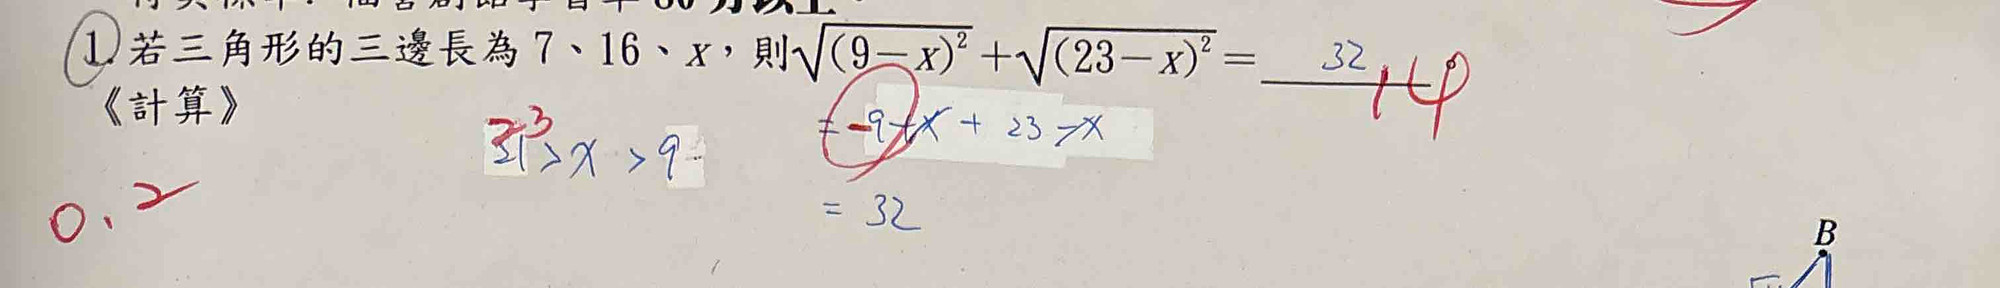 1. 若三角形的三邊長為 7、16、x，則√(9−x)² + √(23−x)² = 32 14
《計算》
23 > x > 9
= -9+x + 23-x
= 32
0.2
B